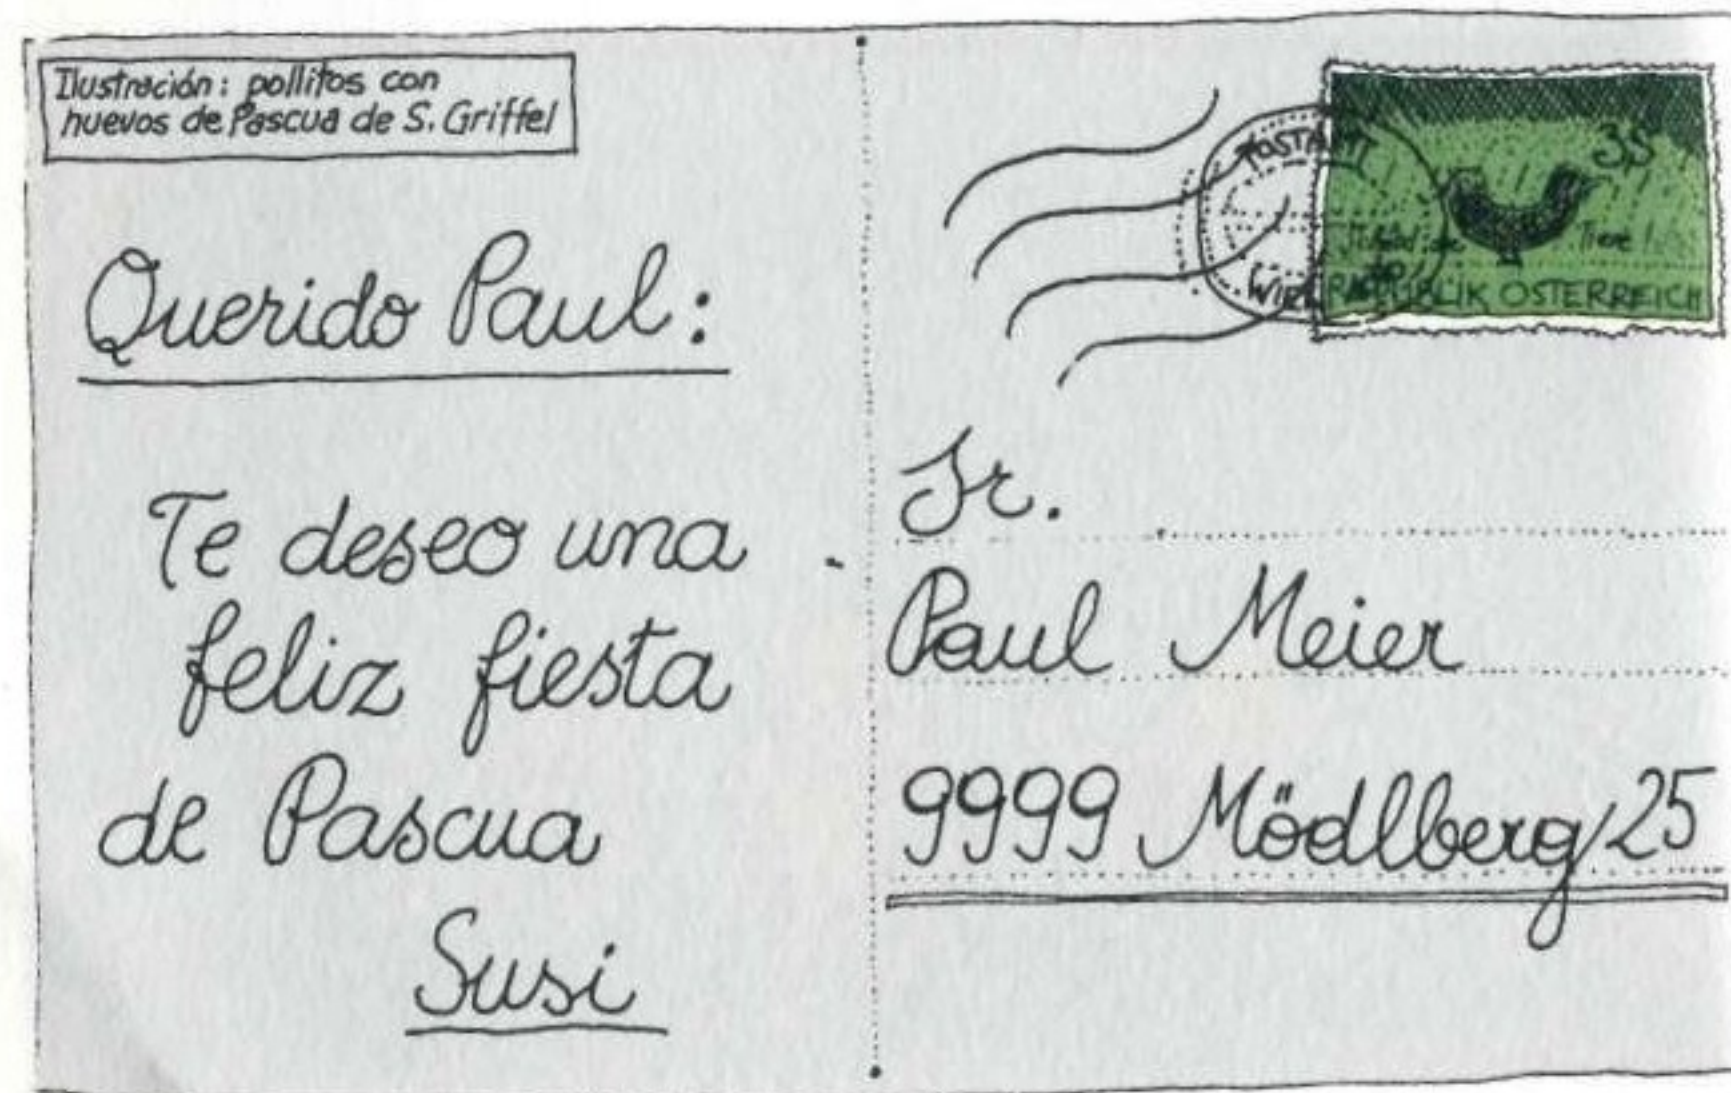 Ilustración: pollitos con
huevos de Pascua de S. Griffel
Querido Paul:
Te deseo una
feliz fiesta
de Pascua
Susi
POSTAMT
WIEN
3S
REPUBLIK OSTERREICH
Sr.
Paul Meier
9999 Mödlberg 25